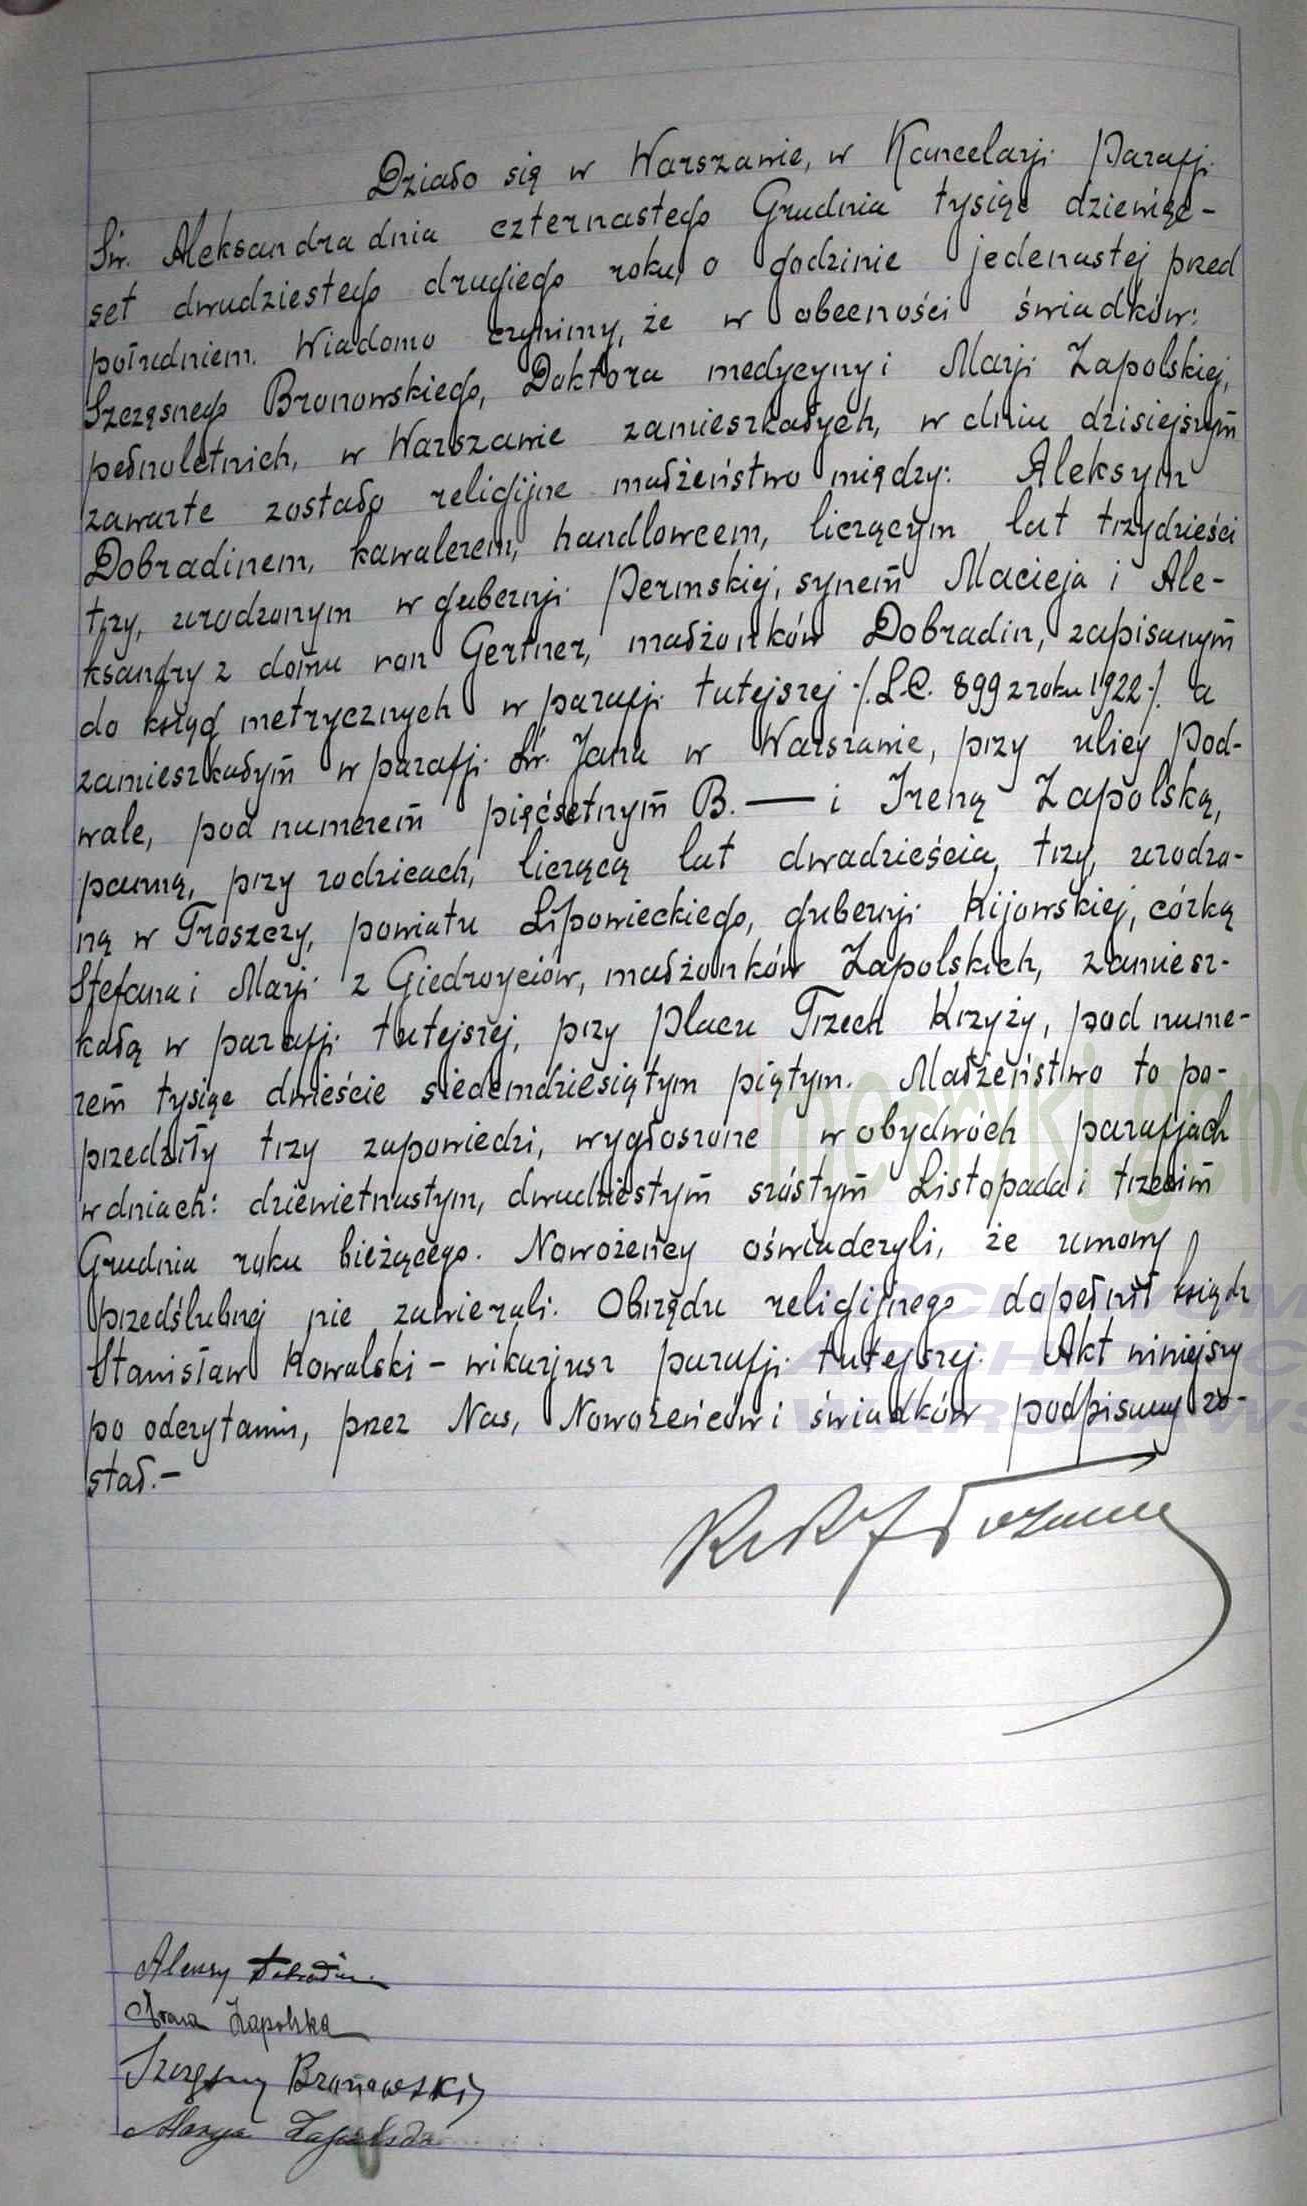 Działo się w Warszawie, w Kancelarji Parafji
Św. Aleksandra dnia czternastego Grudnia tysiąc dziewięć-
set dwudziestego drugiego roku, o godzinie jedenastej przed
południem. Wiadomo czynimy, że w obecności świadków:
Szczęsnego Bronowskiego, Doktora medycyny i Marji Zapolskiej,
pełnoletnich, w Warszawie zamieszkałych, w dniu dzisiejszym
zawarte zostało religijne małżeństwo między: Aleksym
Dobradinem, kawalerem, handlowcem, liczącym lat trzydzieści
trzy, urodzonym w gubernji Permskiej, synem Macieja i Ale-
ksandry z domu von Gertner, małżonków Dobradin, zapisanym
do ksiąg metrycznych w parafji tutejszej /.L.C. 899 z roku 1922./. a
zamieszkałym w parafji Św. Jana w Warszawie, przy ulicy Pod-
wale, pod numerem pięćsetnym B. — i Ireną Zapolską,
panną, przy rodzicach, liczącą lat dwadzieścia trzy, urodzo-
ną w Troszczy, powiatu Lipowieckiego, gubernji Kijowskiej, córką
Stefana i Marji z Giedroyciów, małżonków Zapolskich, zamiesz-
kałą w parafji tutejszej, przy placu Trzech Krzyży, pod nume-
rem tysiąc dwieście siedemdziesiątym piątym. Małżeństwo to po-
przedziły trzy zapowiedzi, wygłoszone w obydwóch parafjach
w dniach: dziewietnastym, dwudziestym szóstym Listopada i trzecim
Grudnia roku bieżącego. Nowożeńcy oświadczyli, że umowy
przedślubnej nie zawierali. Obrzędu religijnego dopełnił ksiądz
Stanisław Kowalski – wikarjusz parafji tutejszej. Akt niniejszy
po odczytaniu, przez Nas, Nowożeńców i świadków podpisany zo-
stał.–
Aleksy Dobradin
Irena Zapolska
Szczęsny Bronowski
Marya Zapolska
metryki.gene
ARCHIWUM
ARCHIDIEC
WARSZAWS